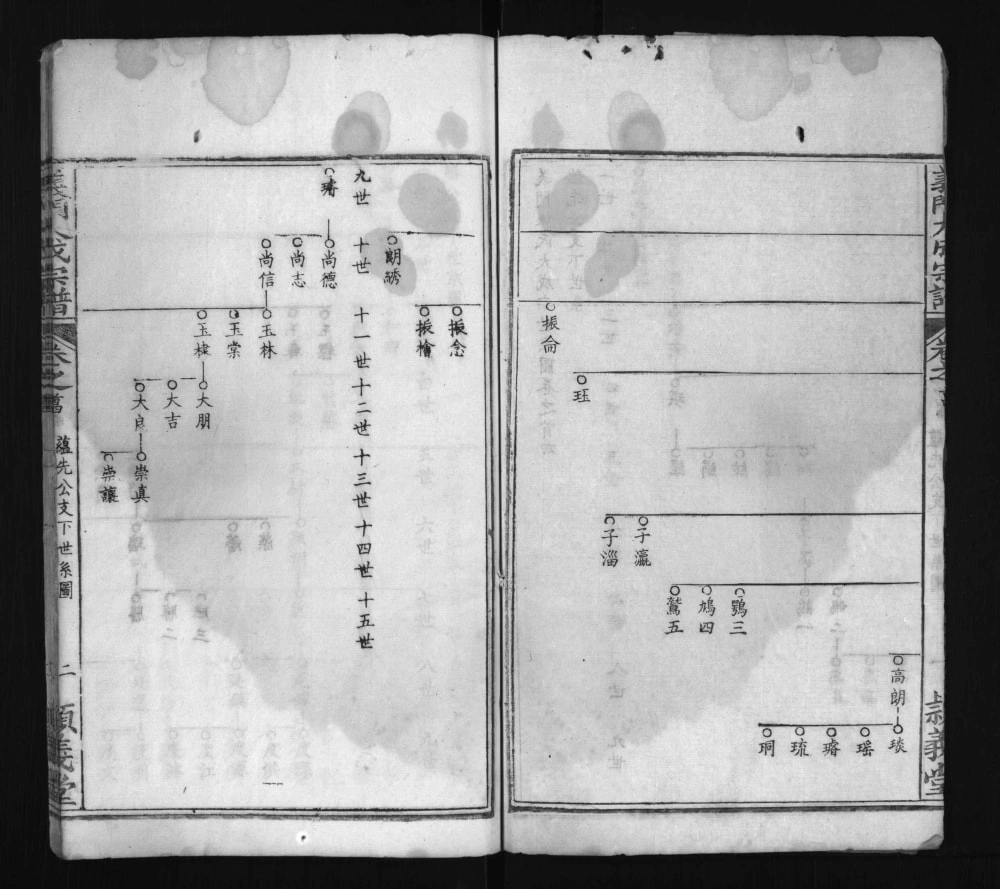 義門大成宗譜
卷之
一
義堂
振侖
珏
子瀛
子淄
鶚三
鳩四
鷟五
高朗
琰
瑶
璿
琉
珦
振念
振檜
朗
九世
十世
十一世
十二世
十三世
十四世
十五世
璿
尚德
尚志
尚信
玉林
玉棠
玉棣
大朋
大吉
大良
崇真
崇讓
義門大成宗譜
卷之
蘊先公支下世系圖
二
順義堂